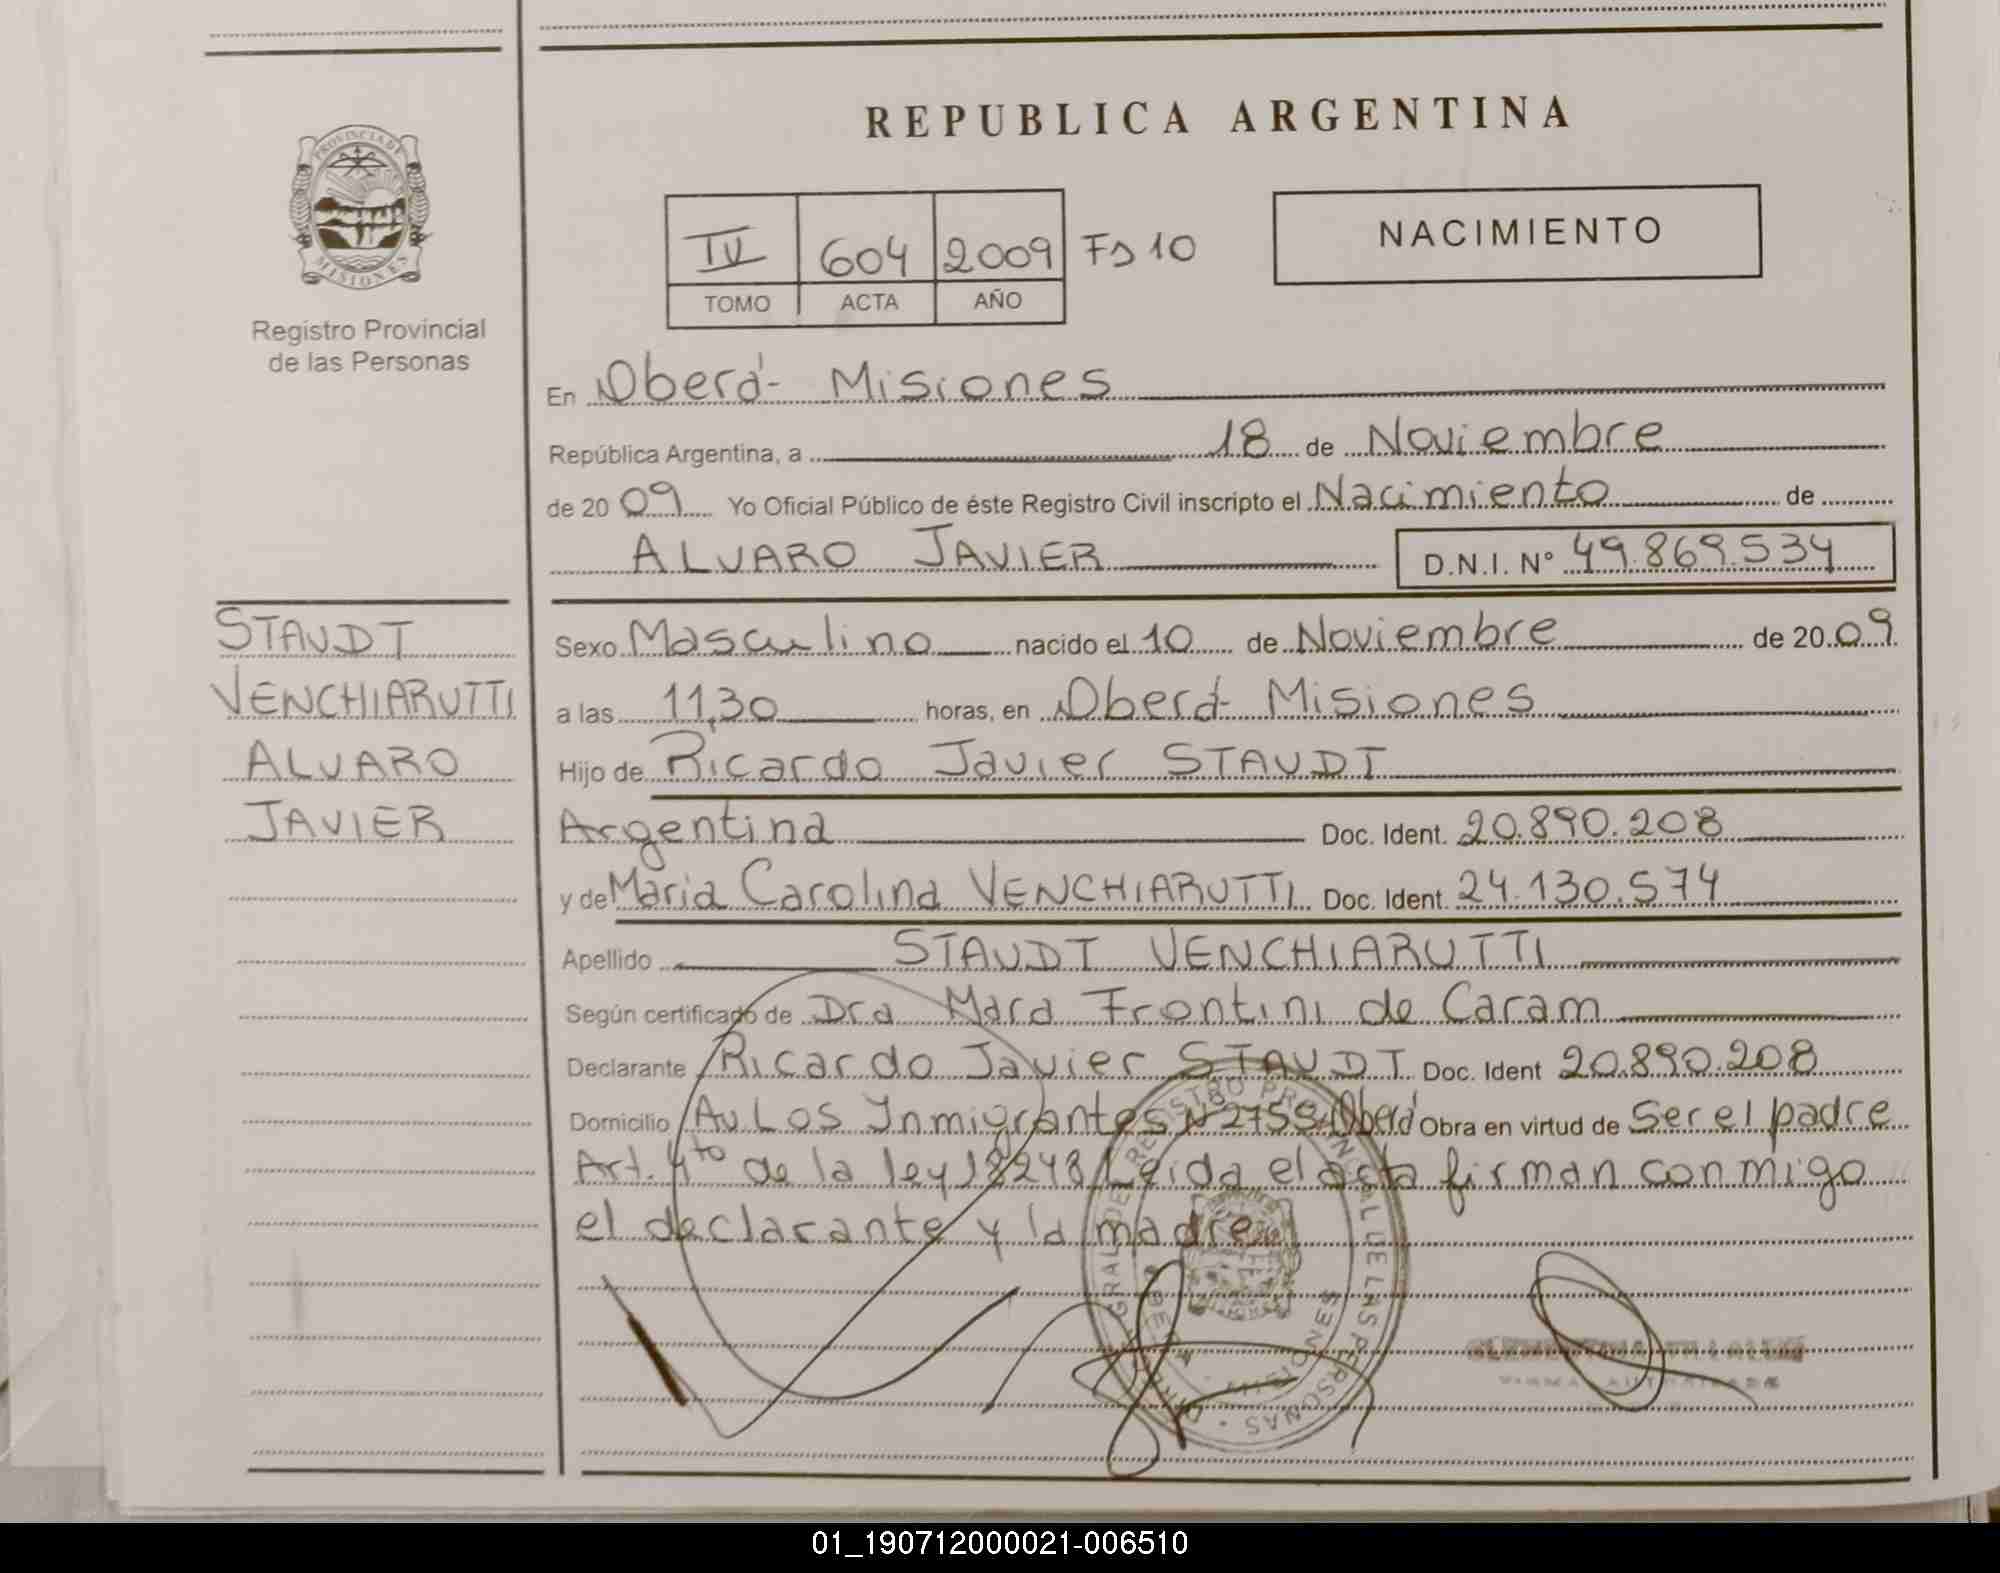 REPUBLICA ARGENTINA
PROVINCIA DE MISIONES
Registro Provincial
de las Personas
NACIMIENTO
IV 604 2009 Fº 10
TOMO ACTA AÑO
En Oberá - Misiones
República Argentina, a 18 de Noviembre
de 20 09 Yo Oficial Público de éste Registro Civil inscripto el Nacimiento de
ALVARO JAVIER D.N.I. Nº 49.869.534
STAUDT
VENCHIARUTTI
ALVARO
JAVIER
Sexo Masculino nacido el 10 de Noviembre de 20 09
a las 11,30 horas, en Oberá - Misiones
Hijo de Ricardo Javier STAUDT
Argentina Doc. Ident. 20.890.208
y de Maria Carolina VENCHIARUTTI Doc. Ident. 24.130.574
Apellido STAUDT VENCHIARUTTI
Según certificado de Dra Mara Frontini de Caram
Declarante Ricardo Javier STAUDT Doc. Ident 20.890.208
Domicilio Av Los Inmigrantes Nº 2759 Oberá Obra en virtud de Ser el padre
Art. 4to de la ley 18248 Leida el acta firman conmigo
el declarante y la madre
REGISTRO PROVINCIAL DE LAS PERSONAS
MISIONES
01_190712000021-006510